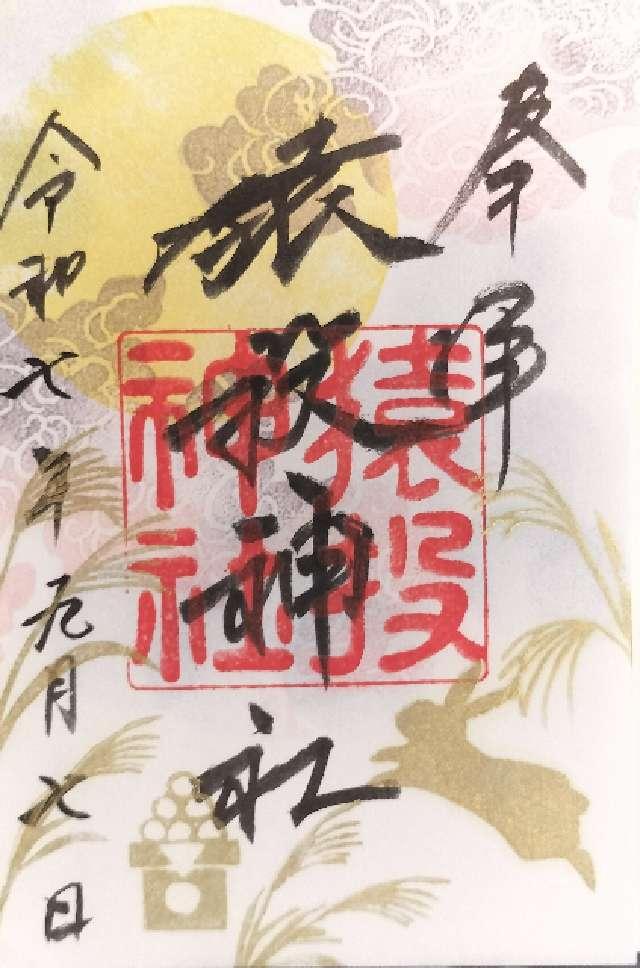 奉拝
猿投神社
猿投神社
令和七年九月七日